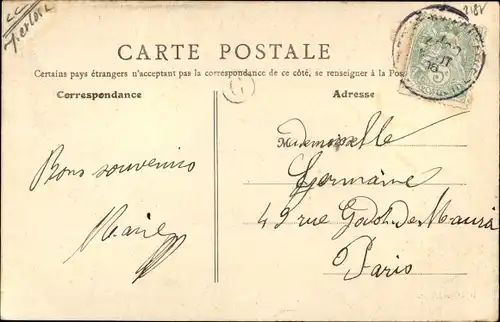 CARTE POSTALE
Certains pays étrangers n'acceptant pas la correspondance de ce côté, se renseigner à la Pos
Correspondance
Adresse
Bons souvenirs
Marie
Mademoiselle
Germaine
49 rue Godot De Mauroi
Paris